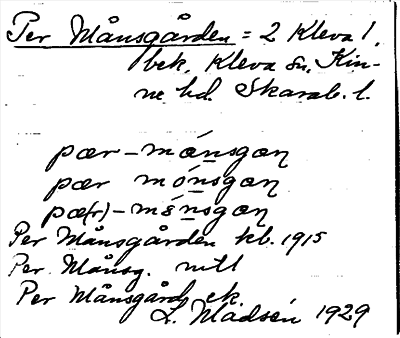 Per Månsgården = 2 Kleva 1,
bek. Kleva sn. Kin-
ne hd. Skarab. l.
pær-månsgan
pær mónsgan
pæ(r)-mǻnsgan
Per Månsgården kb. 1915
Per Månsg. mtl
Per Månsgård ek.
L. Madsén 1929